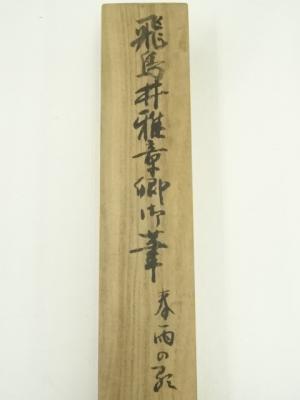 飛鳥井雅章卿御筆
春雨の歌